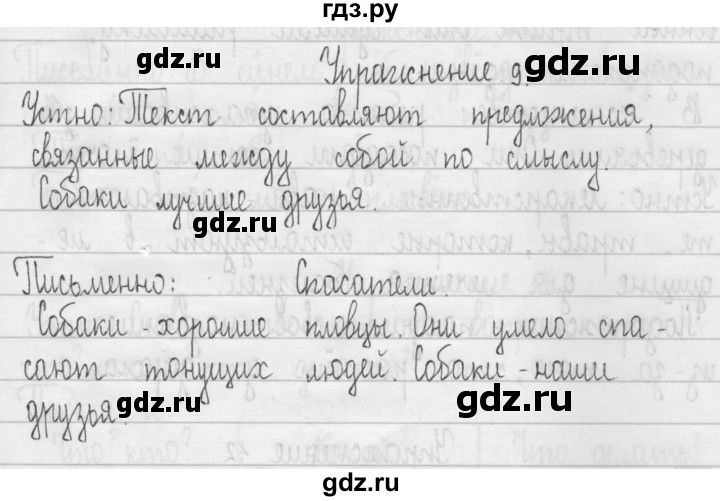 гдз.ру
gdz.ru
gdz.ru
Упражнение 9.
Устно: Текст составляют предложения,
связанные между собой по смыслу.
gdz.ru
Собаки лучшие друзья.
gdz.ru
Письменно: Спасатели.
Собаки - хорошие пловцы. Они умело спа-
сают тонущих людей. Собаки - наши
друзья.
gdz.ru
gdz.ru
Упражнение 12.